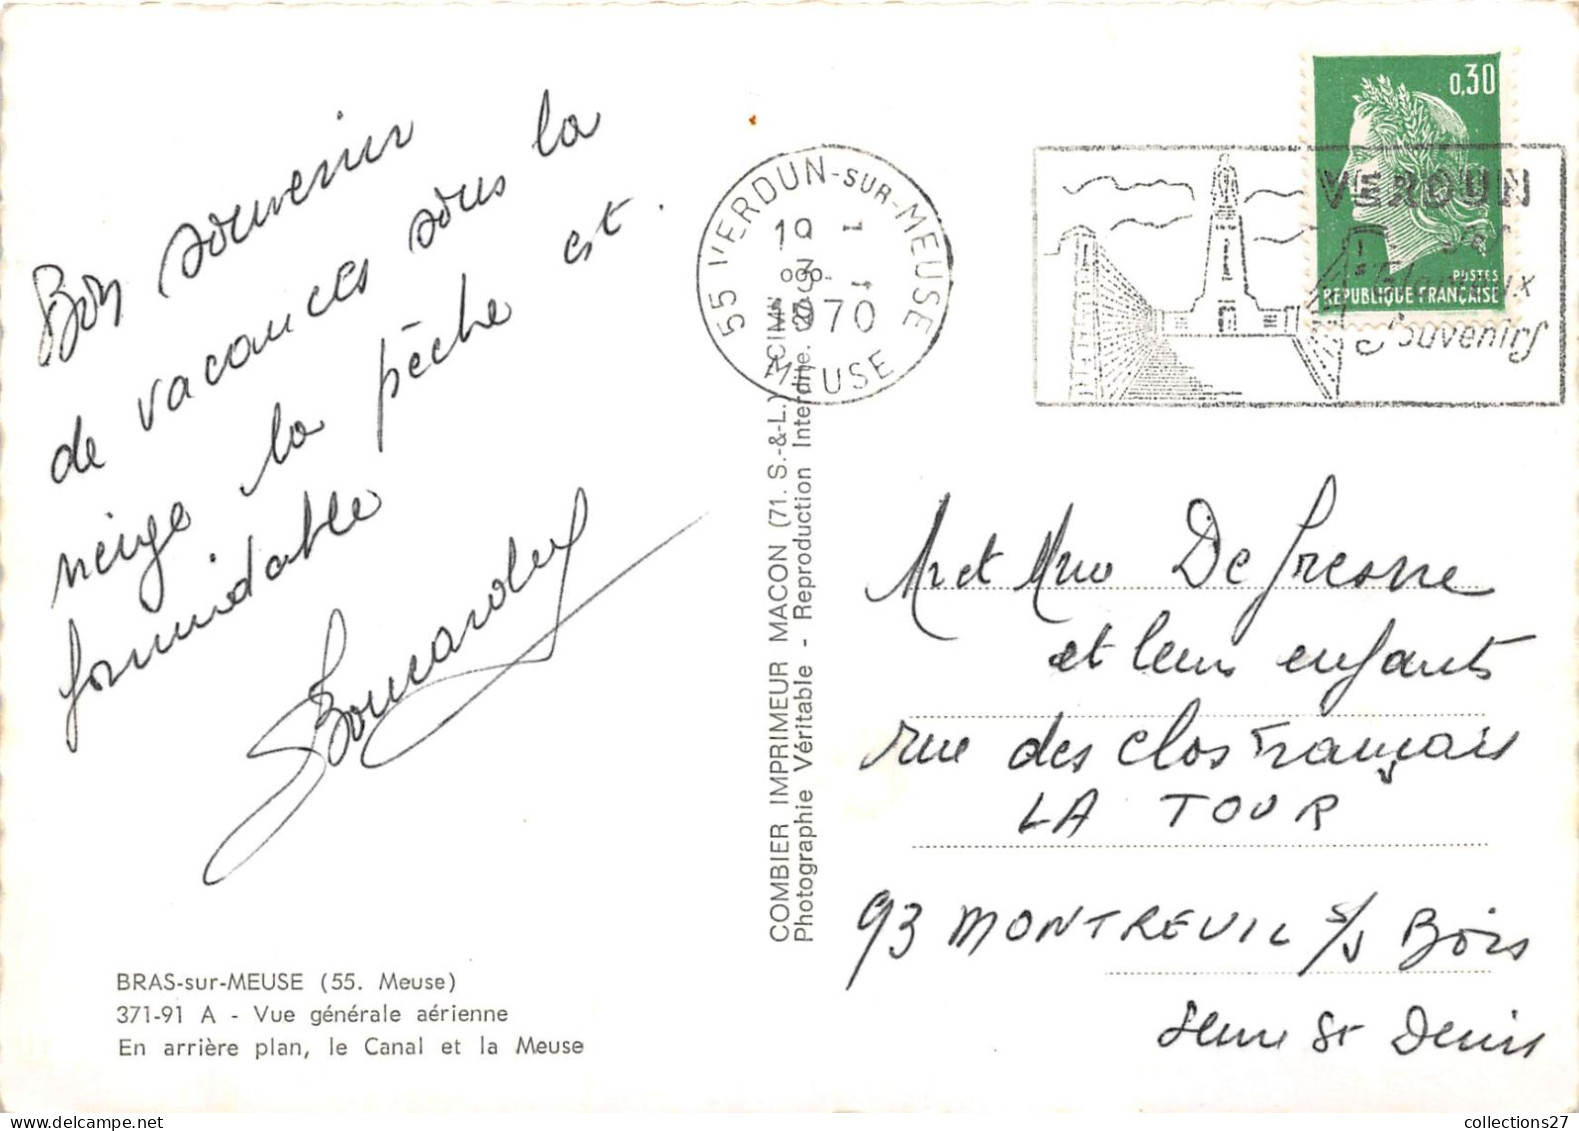 Bon souvenir
de vacances sous la
neige la pêche est
formidable
BRAS-sur-MEUSE (55. Meuse)
371-91 A - Vue générale aérienne
En arrière plan, le Canal et la Meuse
COMBIER IMPRIMEUR MACON (71. S.-&-L.) "CIM"
Photographie Véritable - Reproduction Interdite.
55 VERDUN-SUR-MEUSE
1970
MEUSE
VERDUN
ses
Glorieux
Souvenirs
0,30
POSTES
REPUBLIQUE FRANÇAISE
M et Mme De fresne
et leurs enfants
rue des clos Français
LA TOUR
93 MONTREUIL s/s Bois
Seine St Denis
collections27